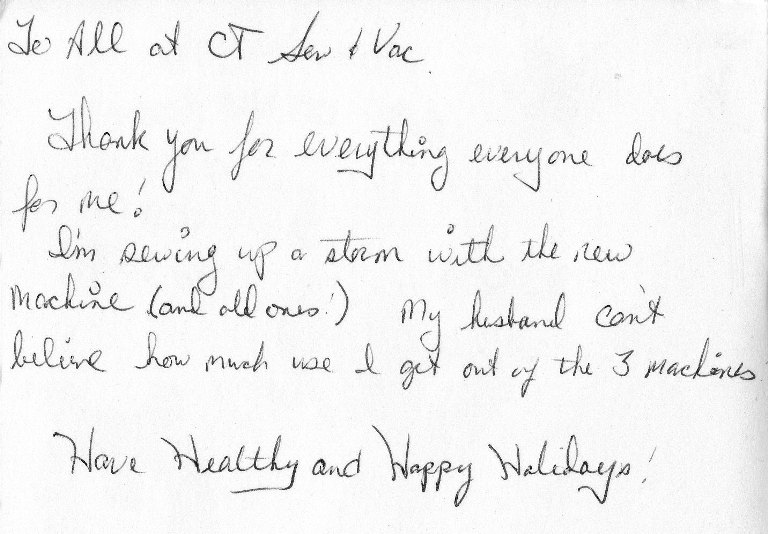 To All at CT Sew & Vac
Thank you for everything everyone does
for me!
I'm sewing up a storm with the new
machine (and old ones!) My husband can't
believe how much use I get out of the 3 machines.
Have Healthy and Happy Holidays!